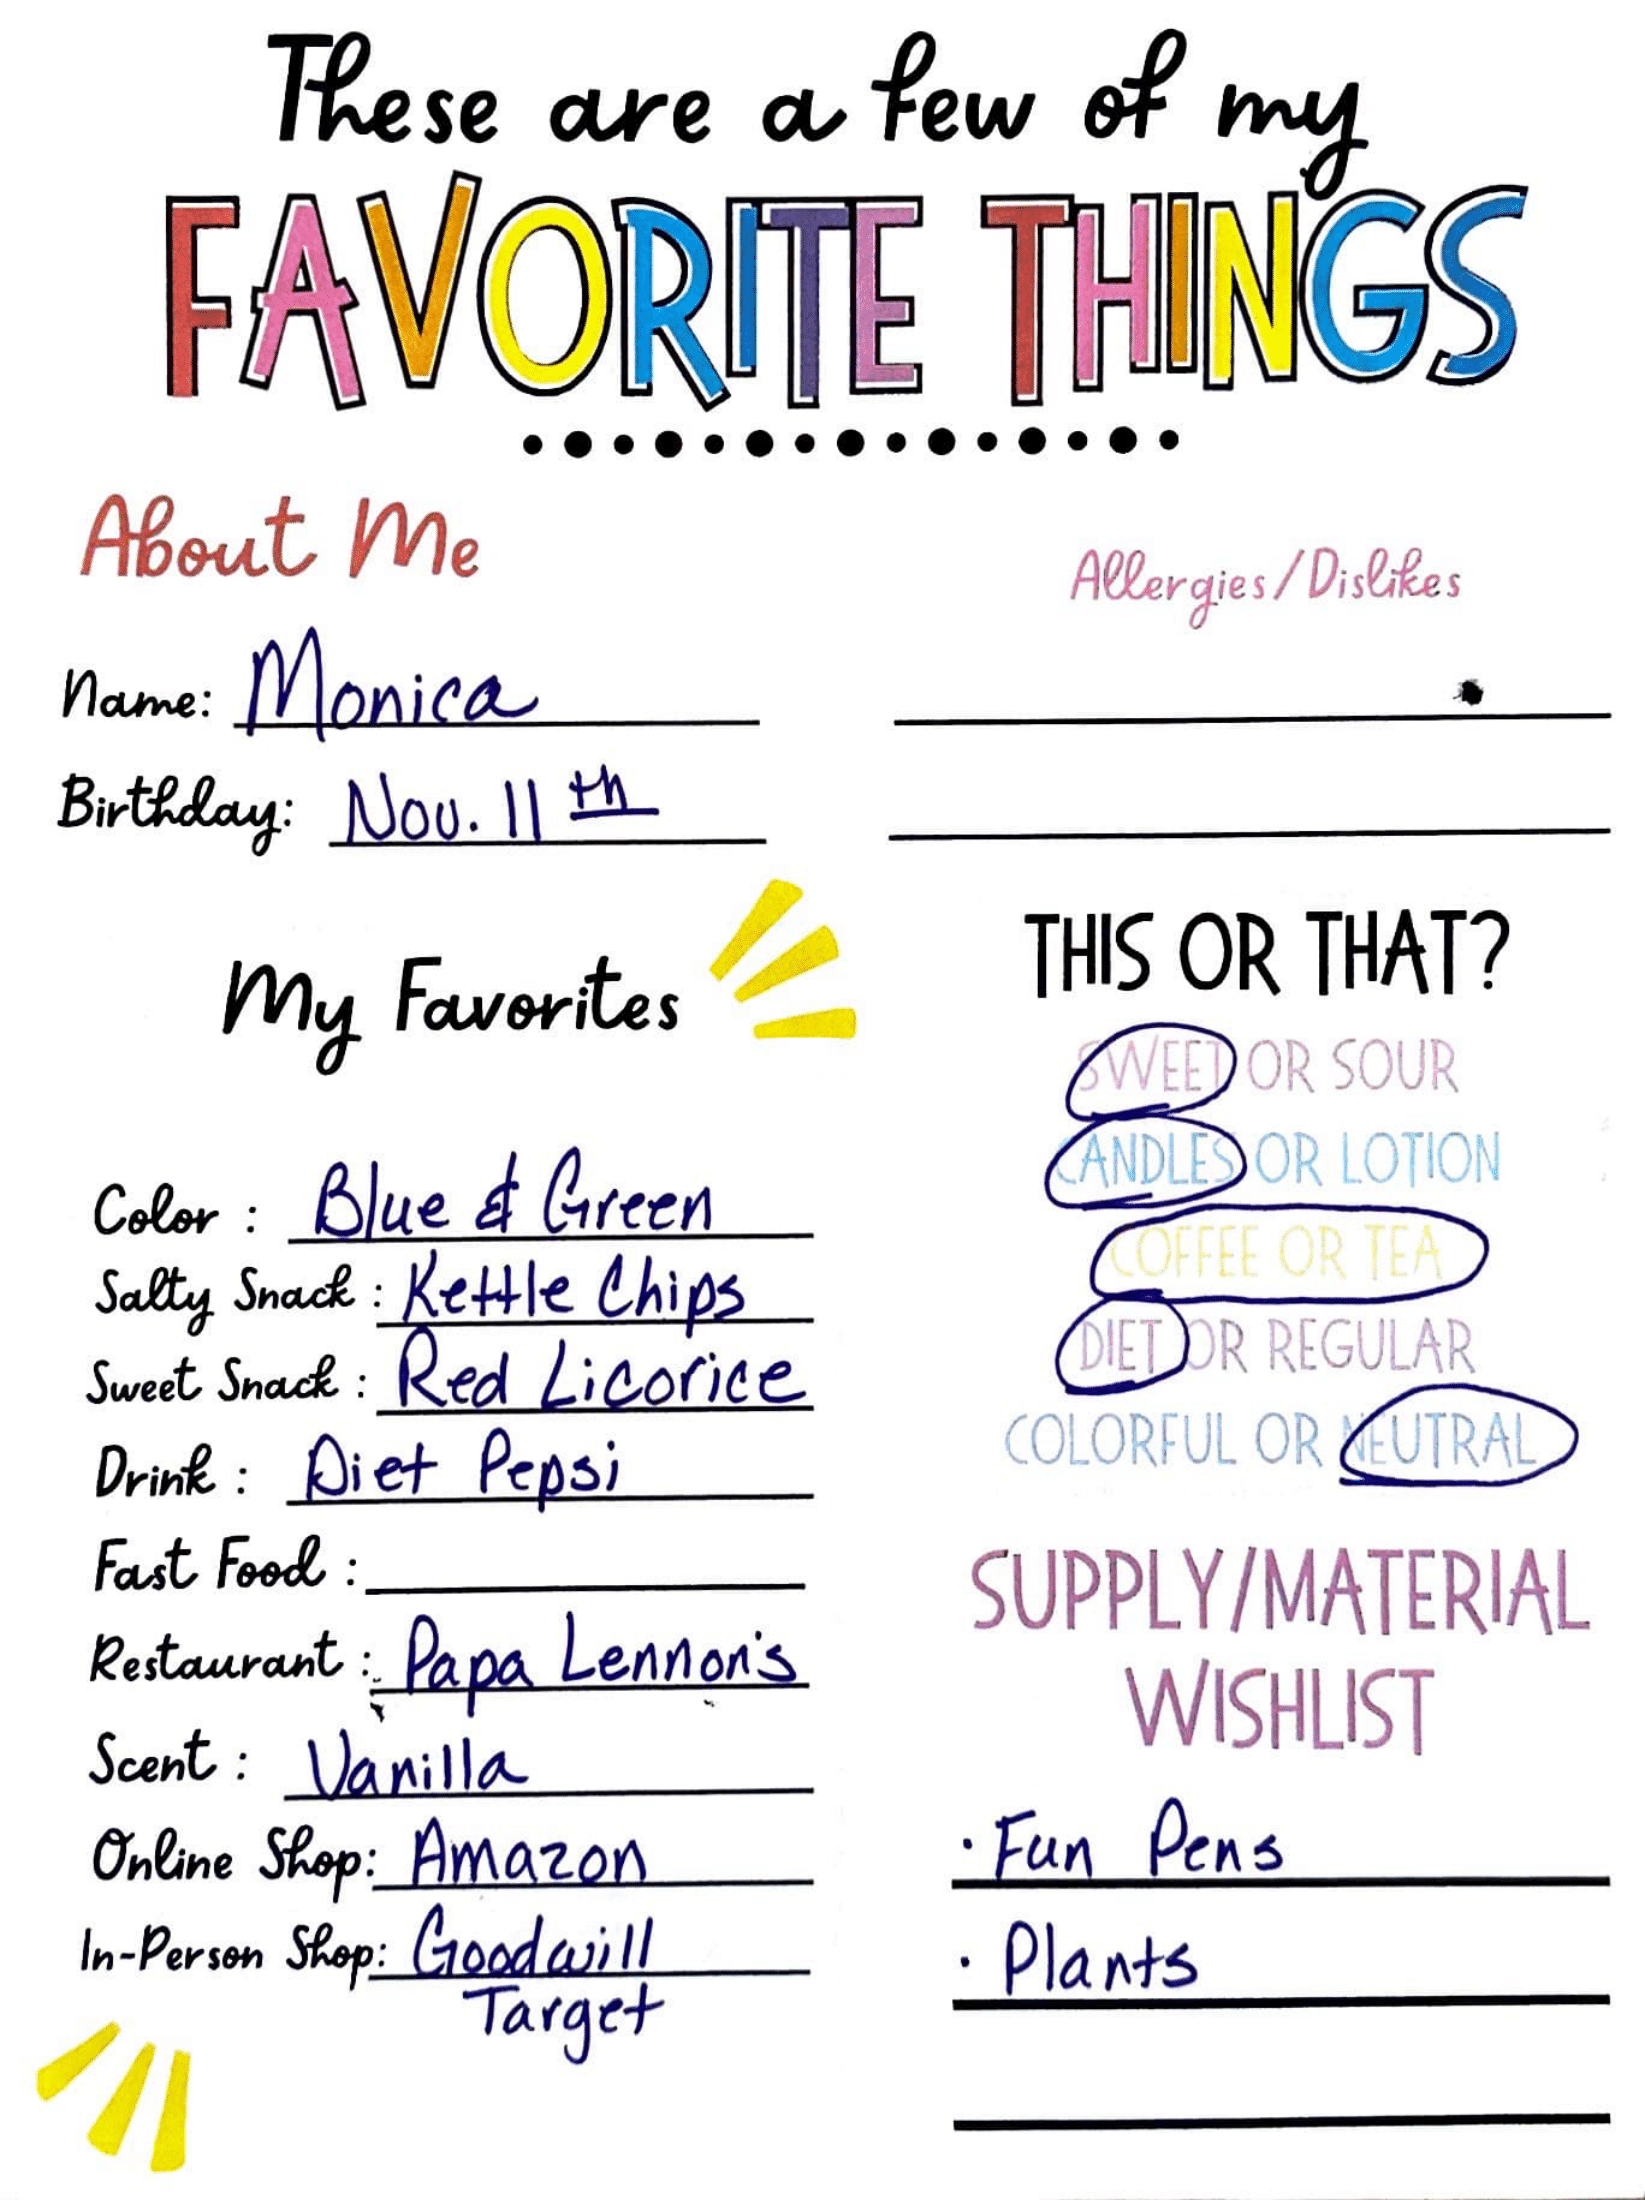 These are a few of my
FAVORITE THINGS
About Me
Name: Monica
Birthday: Nov. 11th
Allergies/Dislikes
My Favorites
Color : Blue & Green
Salty Snack : Kettle Chips
Sweet Snack : Red Licorice
Drink : Diet Pepsi
Fast Food :
Restaurant : Papa Lennon's
Scent : Vanilla
Online Shop: Amazon
In-Person Shop: Goodwill
Target
THIS OR THAT?
SWEET OR SOUR
CANDLES OR LOTION
COFFEE OR TEA
DIET OR REGULAR
COLORFUL OR NEUTRAL
SUPPLY/MATERIAL
WISHLIST
· Fun Pens
· Plants